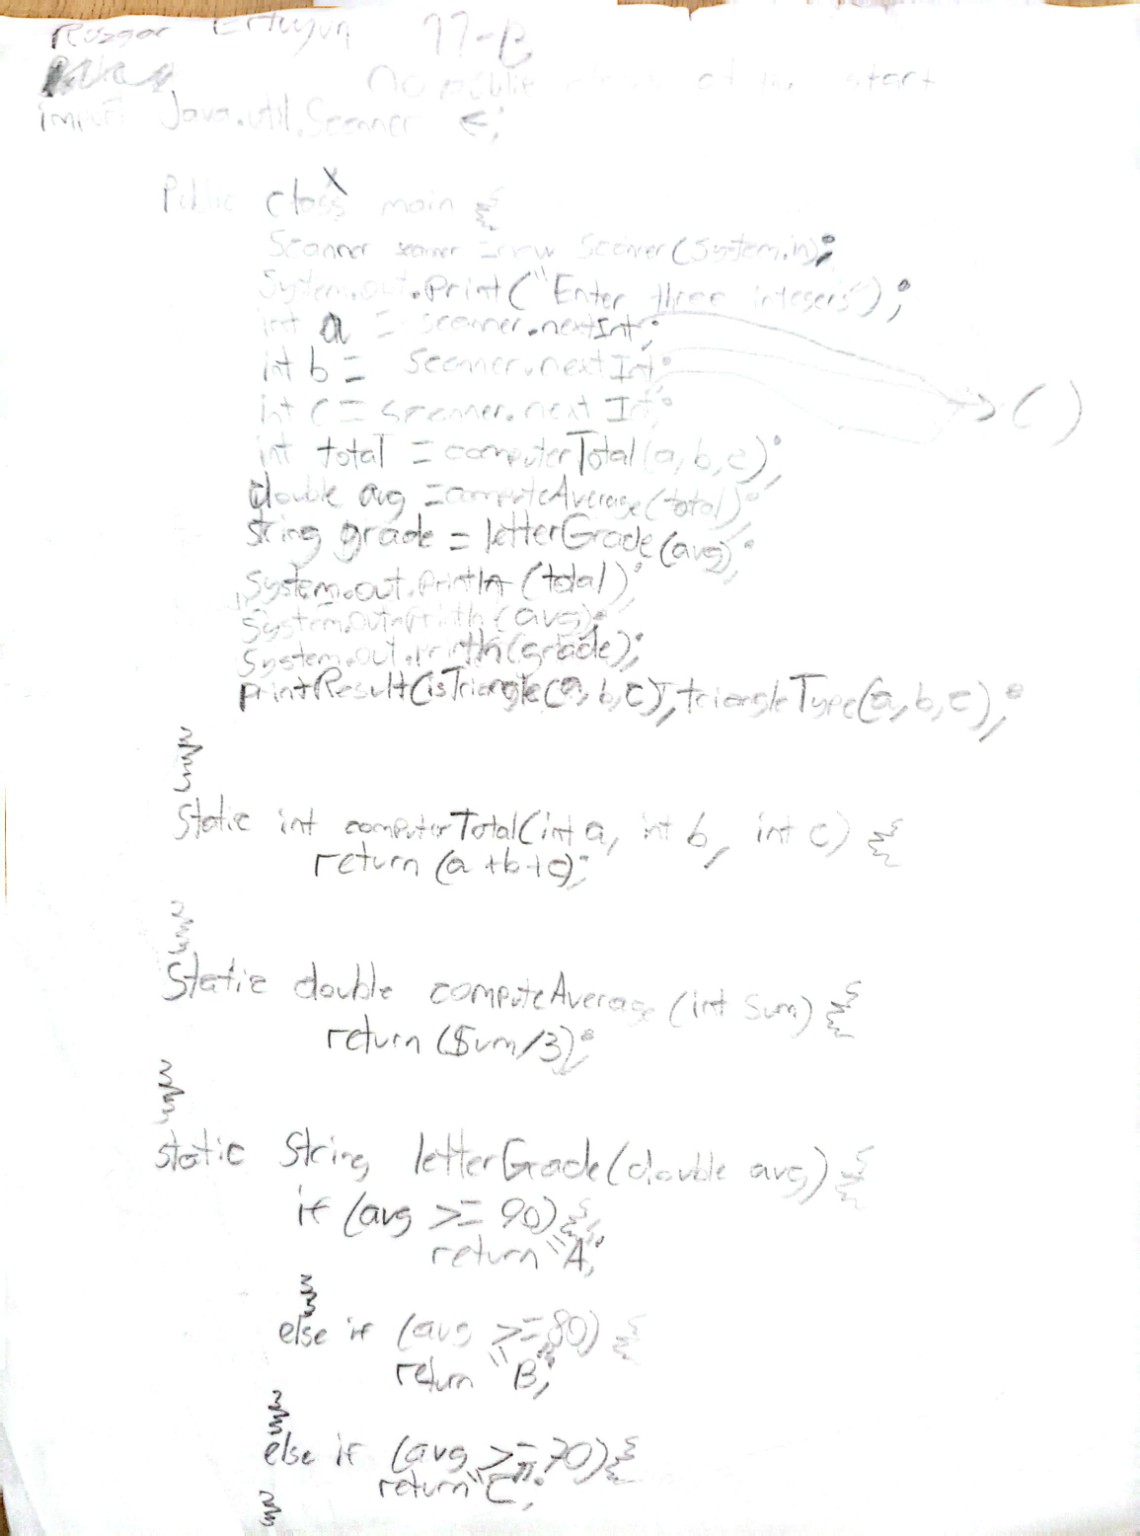 Rüzgar Ertuğun 11-B
no public class at the start
import Java.util.Scanner ;
Public class main {
Scanner scanner = new Scanner(System.in);
System.out.Print("Enter three integers");
int a = scanner.nextInt;
int b = scanner.nextInt;
int c = scanner.nextInt; ()
int total = computerTotal(a, b, c);
double avg = computeAverage(total);
string grade = letterGrade(avg);
System.out.println(total);
System.out.println(avg);
System.out.println(grade);
printResult(isTriangle(a, b, c), triangleType(a, b, c);
}
Static int computerTotal(int a, int b, int c) {
return (a+b+c);
}
Static double computeAverage(int sum) {
return (Sum/3);
}
static String letterGrade(double avg) {
if (avg >= 90) {
return "A";
}
else if (avg >= 80) {
return "B";
}
else if (avg >= 70) {
return "C";
}